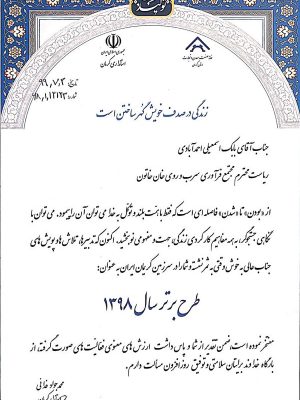 جمهوری اسلامی ایران
استانداری کرمان
تاریخ: ۹۹,۷,۳
زندگی در صدف خویش گهر ساختن است
جناب آقای بابک اسمعیلی احمدآبادی
ریاست محترم مجتمع فرآوری سرب و روی خان خاتون
از «بودن» تا «شدن» فاصله ای است که فقط با همت بلند و توکل به خدا می توان آن را پیمود. می توان با
نگاهی جستجوگر، به همه مفاهیم کارکردی زندگی، جهت و مفهومی نو بخشید. اکنون که تدبیرها، تلاش ها و پویش های
جناب عالی به خوش وقتی به ثمر نشسته و شما را در سرزمین کرمان ایران به عنوان:
طرح برتر سال ۱۳۹۸
مفتخر نموده است، ضمن تقدیر از شما و پاس داشت ارزش های معنوی فعالیت های صورت گرفته از
بارگاه خداوند برایتان سلامتی و توفیق روز افزون مسألت دارم.
محمدجواد فدائی